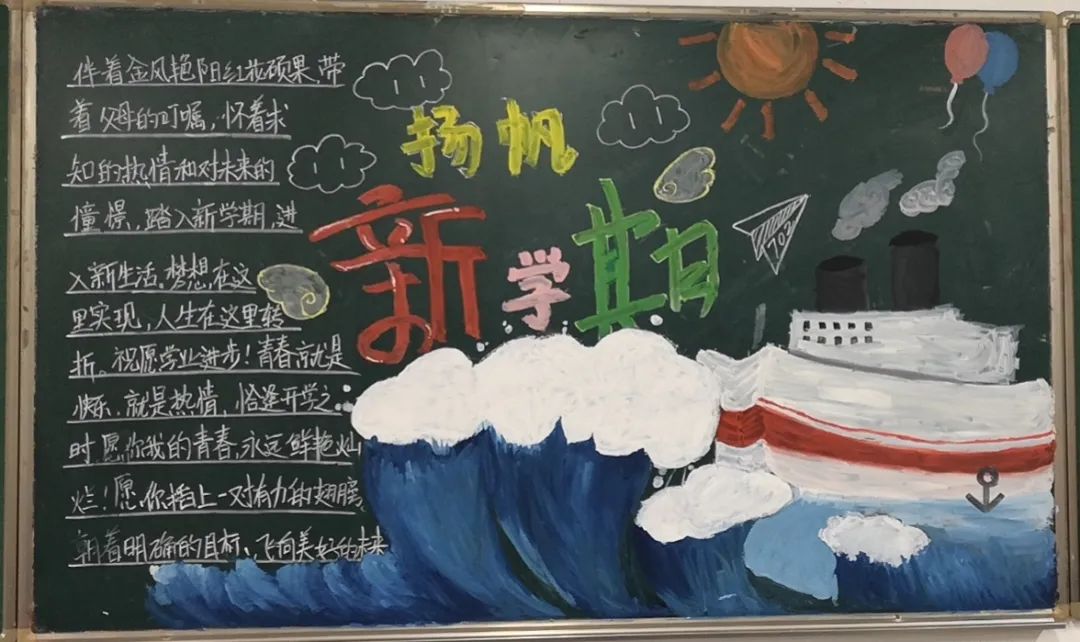 伴着金风艳阳红花硕果,带
着父母的叮嘱,怀着求
知的热情和对未来的
憧憬,踏入新学期,进
入新生活。梦想在这
里实现,人生在这里转
折。祝愿学业进步!青春就是
快乐,就是热情,恰逢开学之
时,愿你我的青春,永远鲜艳灿
烂!愿你插上一对有力的翅膀,
朝着明确的目标,飞向美好的未来
扬帆
新学期
702